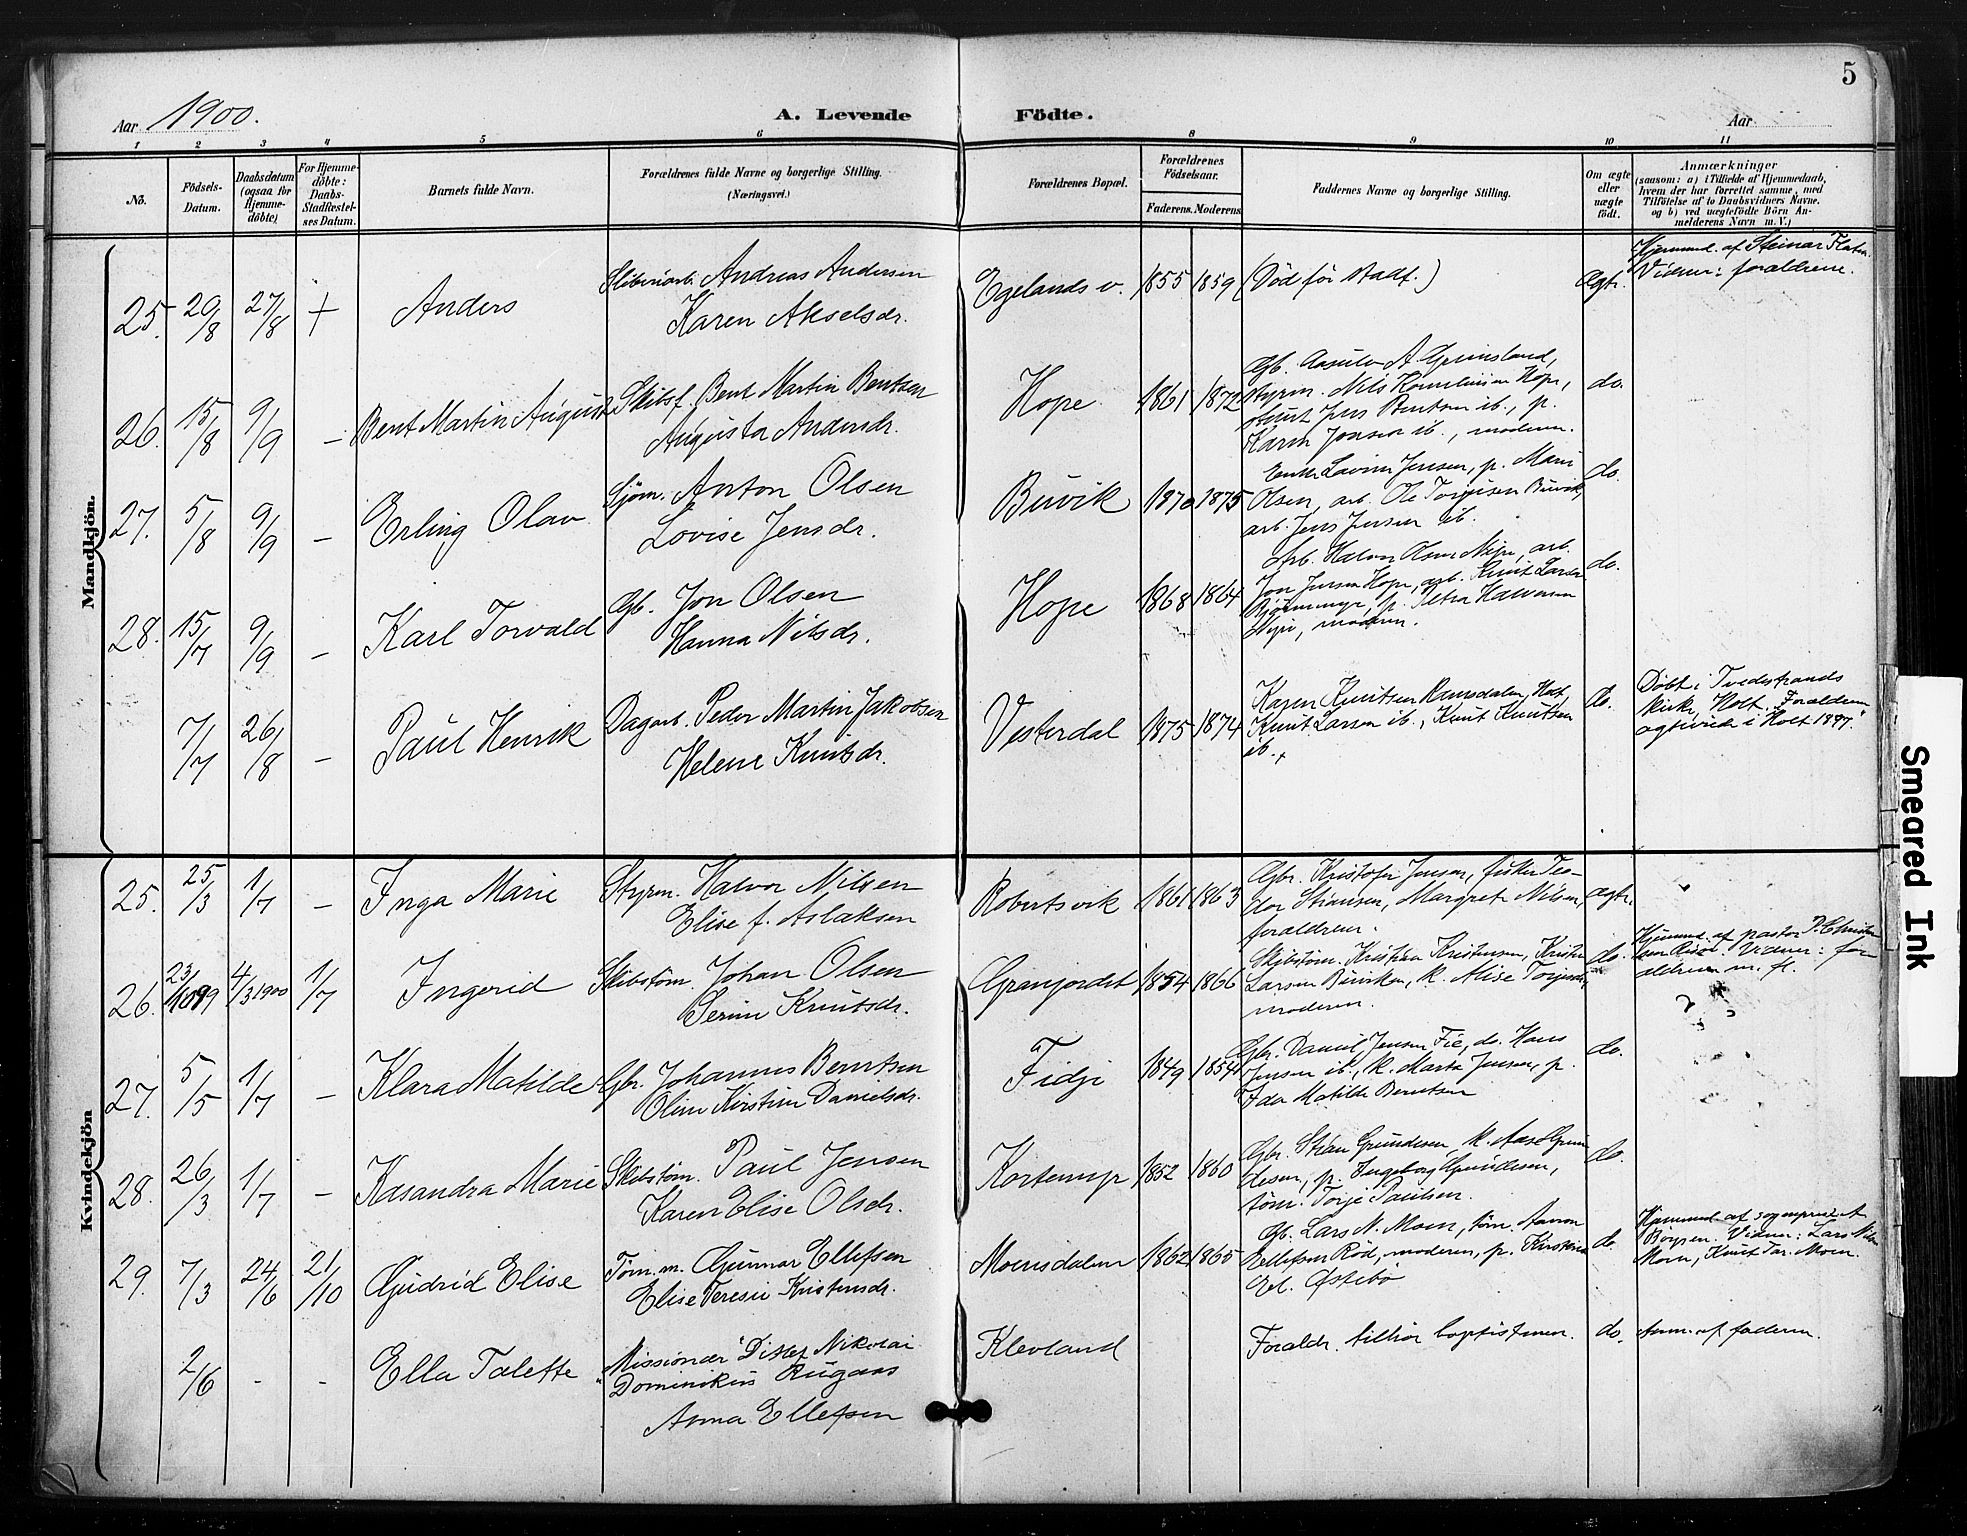 5
Aar 1900.
A. Levende Födte.
Aar
1 2 3 4 5 6 8 9 10 11
No.
Födsels-Datum.
Daabsdatum (ogsaa for Hjemme-döbte)
For Hjemme-döbte: Daabs-Stadfæstel-ses Datum.
Barnets fulde Navn.
Forældrenes fulde Navne og borgerlige Stilling.
(Næringsvei.)
Forældrenes Bopæl.
Forældrenes Födselsaar.
Faderens. Moderens.
Faddernes Navne og borgerlige Stilling.
Om ægte eller uægte födt.
Anmærkninger
(saasom: a) i Tilfælde af Hjemmedaab,
hvem der har forrettet samme, med
Tilföielse af to Daabsvidners Navne.
og b) ved uægtefödte Börn An-
melderens Navn m. V.)
Mandkjön.
25. 20/8 27/8 + Anders
Andreas Andersen
Karen Akselsdr.
Egelands v. 1855 1859 (Död før stadf.) Ægte.
Hjemmed. af Steinar
Vidner: forældrene.
26. 15/8 9/9 – Bent Martin August
Skibsf. Bent Martin Bentsen
Augusta Andersdr.
Hope 1861 1872
Gb. A. Grimsland,
styrm. Nils Hope,
Jens Bentsen ib., p.
Karen Jensen ib., moderen.
do.
27. 5/8 9/9 – Erling Olav
Sjøm. Anton Olsen
Lovise Jensdr.
Buvik 1870 1875
Enke Jensen, p. Marie
Olsen, arb. Ole Buvik,
arb. Jens Jensen ib.
do.
28. 15/7 9/9 – Karl Torvald
Gb. Jon Olsen
Hanna Nilsdr.
Hope 1868 1864
Arb. Halvor Olsen, arb.
Jon Jensen Hope, arb. Knut Larsen
p. Petra Halvorsen
moderen.
do.
7/7 26/8 – Paul Henrik
Dagarb. Peder Martin Jakobsen
Helene Knutsdr.
Vesterdal 1875 1874
Karen Knutsen Ramsdalen, Holt,
Knut Larsen ib., Knut Knutsen
ib. +
do.
Döbt i Tvedestrands
kirke, Holt. Forældrene
ægteviet i Holt 1897.
Kvindekjön
25. 25/3 1/7 – Inga Marie
Styrm. Halvor Nilsen
Elise f. Aslaksen
Robertsvik 1861 1863
Gbr. Kristofer Jensen, fisker Teo-
dor Stiansen, Margrete Nilsen,
forældrene.
ægte.
26. 23/10 99 4/3 1900 1/7 Ingerid
Skibstöm. Johan Olsen
Serine Knutsdr.
Granjordet 1854 1866
Skibstöm. Kristian Kristensen,
Larsen k. Alise
moderen
do.
Hjemmed. af pastor
Risör. Vidner: for-
ældrene m. fl.
27. 5/5 1/7 – Klara Matilde
Gbr. Johannes Berntsen
Oline Kirstine Danielsdr.
Fidje 1849 1854
Gbr. Daniel Jensen Fie, do. Hans
Jensen ib., k. Marta Jensen, p.
Ida Matilde Berntsen
do.
28. 26/3 1/7 – Kasandra Marie
Skibstöm. Paul Jensen
Karen Elise Olsdr.
1852 1860
Gbr. Stian Gundesen, k. Aase Gun-
desen, p. Ingeborg Gundesen,
töm. Torje Paulsen.
do.
29. 7/3 24/6 21/10 Gudrid Elise
Töm.m. Gunnar Ellefsen
Elise Teresie Kristensdr.
Moensdalen 1862 1865
Gb. Lars N. Moen, töm. Aanon
Ellefsen Röd, moderen, p. Kirstine
El. Østebö
do.
Hjemmed. af sogneprest
Vidner: Lars
Moen, Knut Moen.
2/6 - - Ella Talette
Missionær Ditlef Nikolai
Dominikus Rugaas
Anna Ellefsen
Klevland
Forældr. tilhör baptisterne.
do.
Anm. af faderen.
Smeared Ink